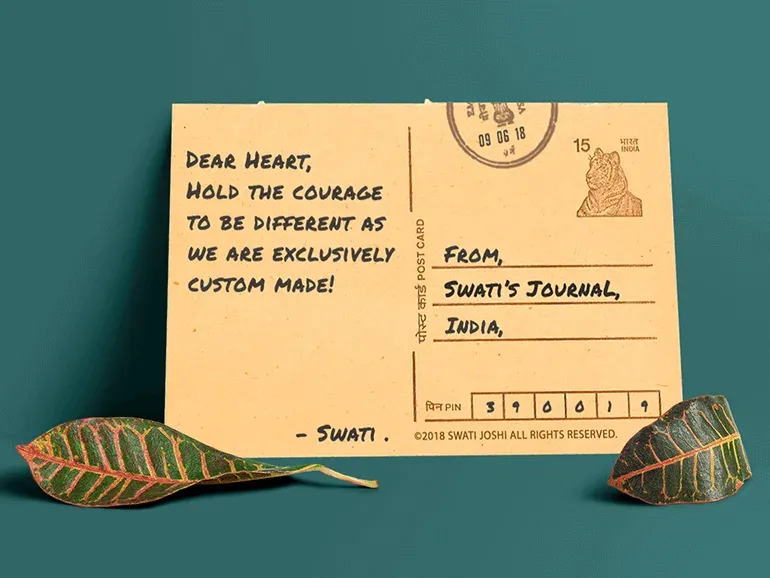 DEAR HEART,
HOLD THE COURAGE
TO BE DIFFERENT AS
WE ARE EXCLUSIVELY
CUSTOM MADE!
- SWATI .
पोस्ट कार्ड POST CARD
09 06 18
15 भारत
INDIA
FROM,
SWATI'S JOURNAL,
INDIA,
पिन PIN 3 9 0 0 1 9
©2018 SWATI JOSHI ALL RIGHTS RESERVED.